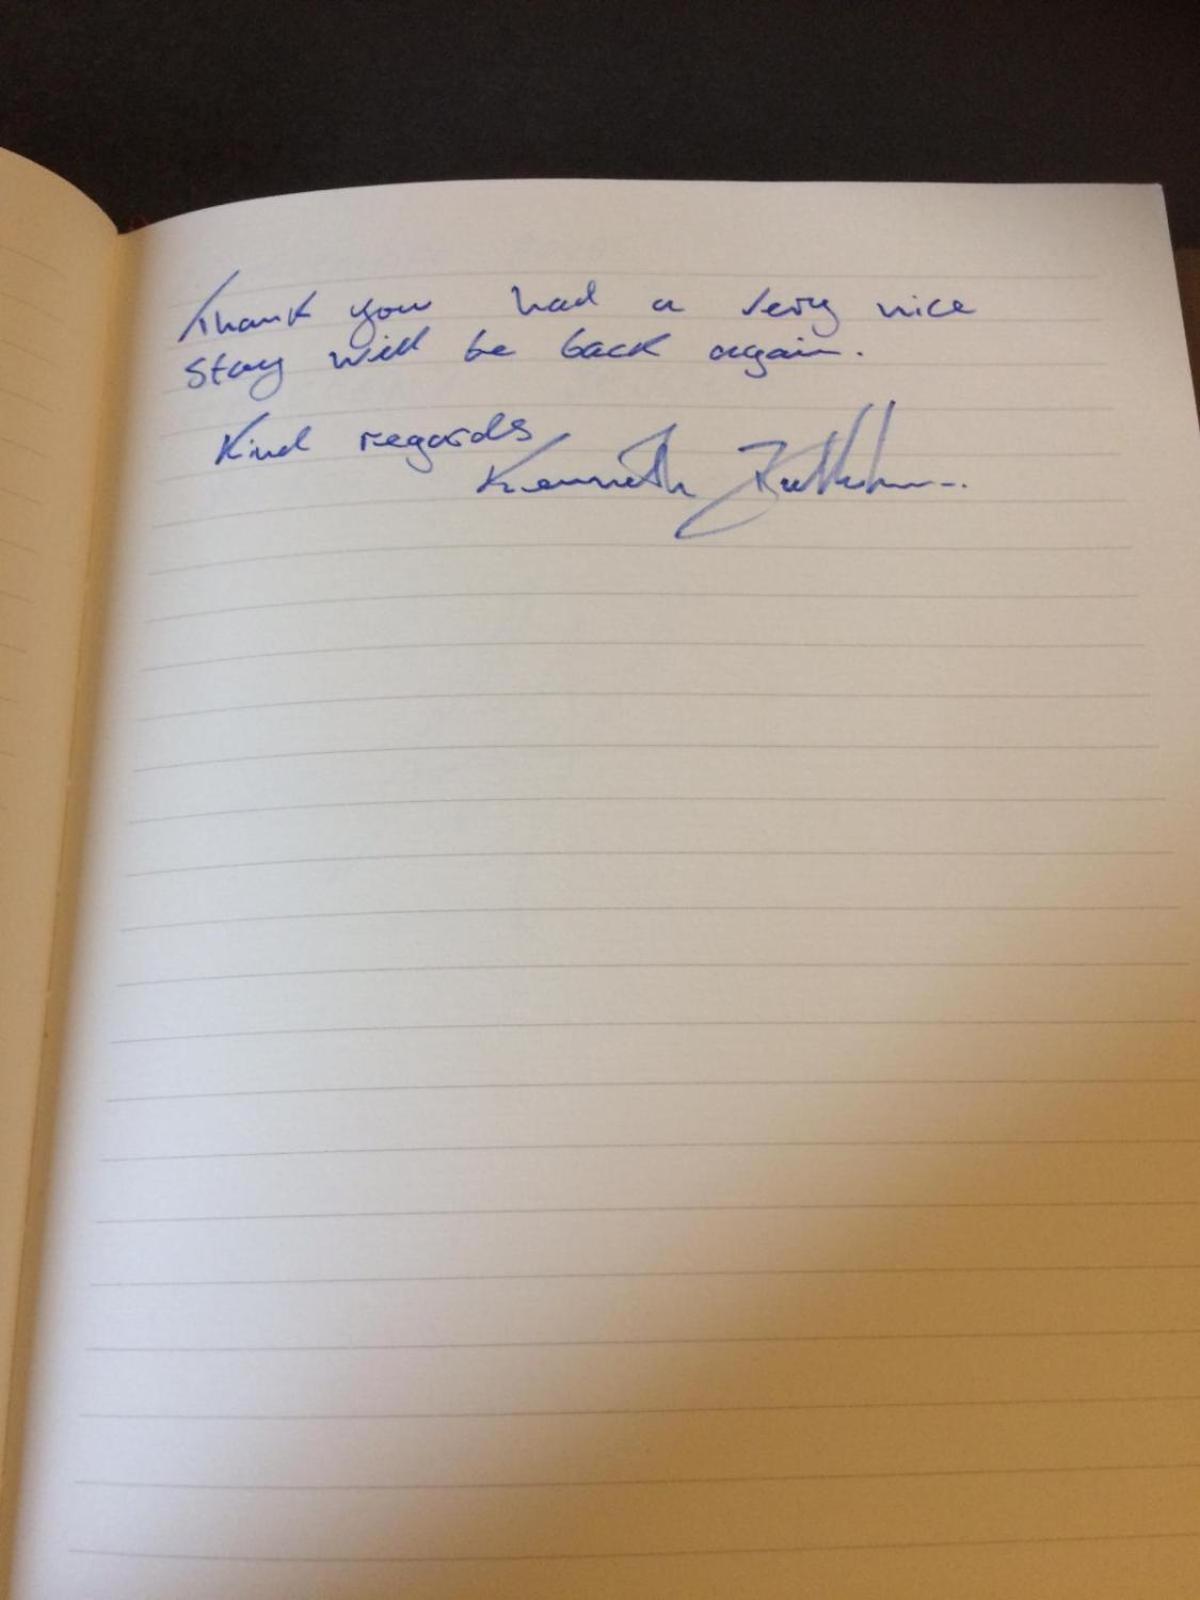 Thank you had a very nice
stay will be back again.
Kind regards
Kenneth